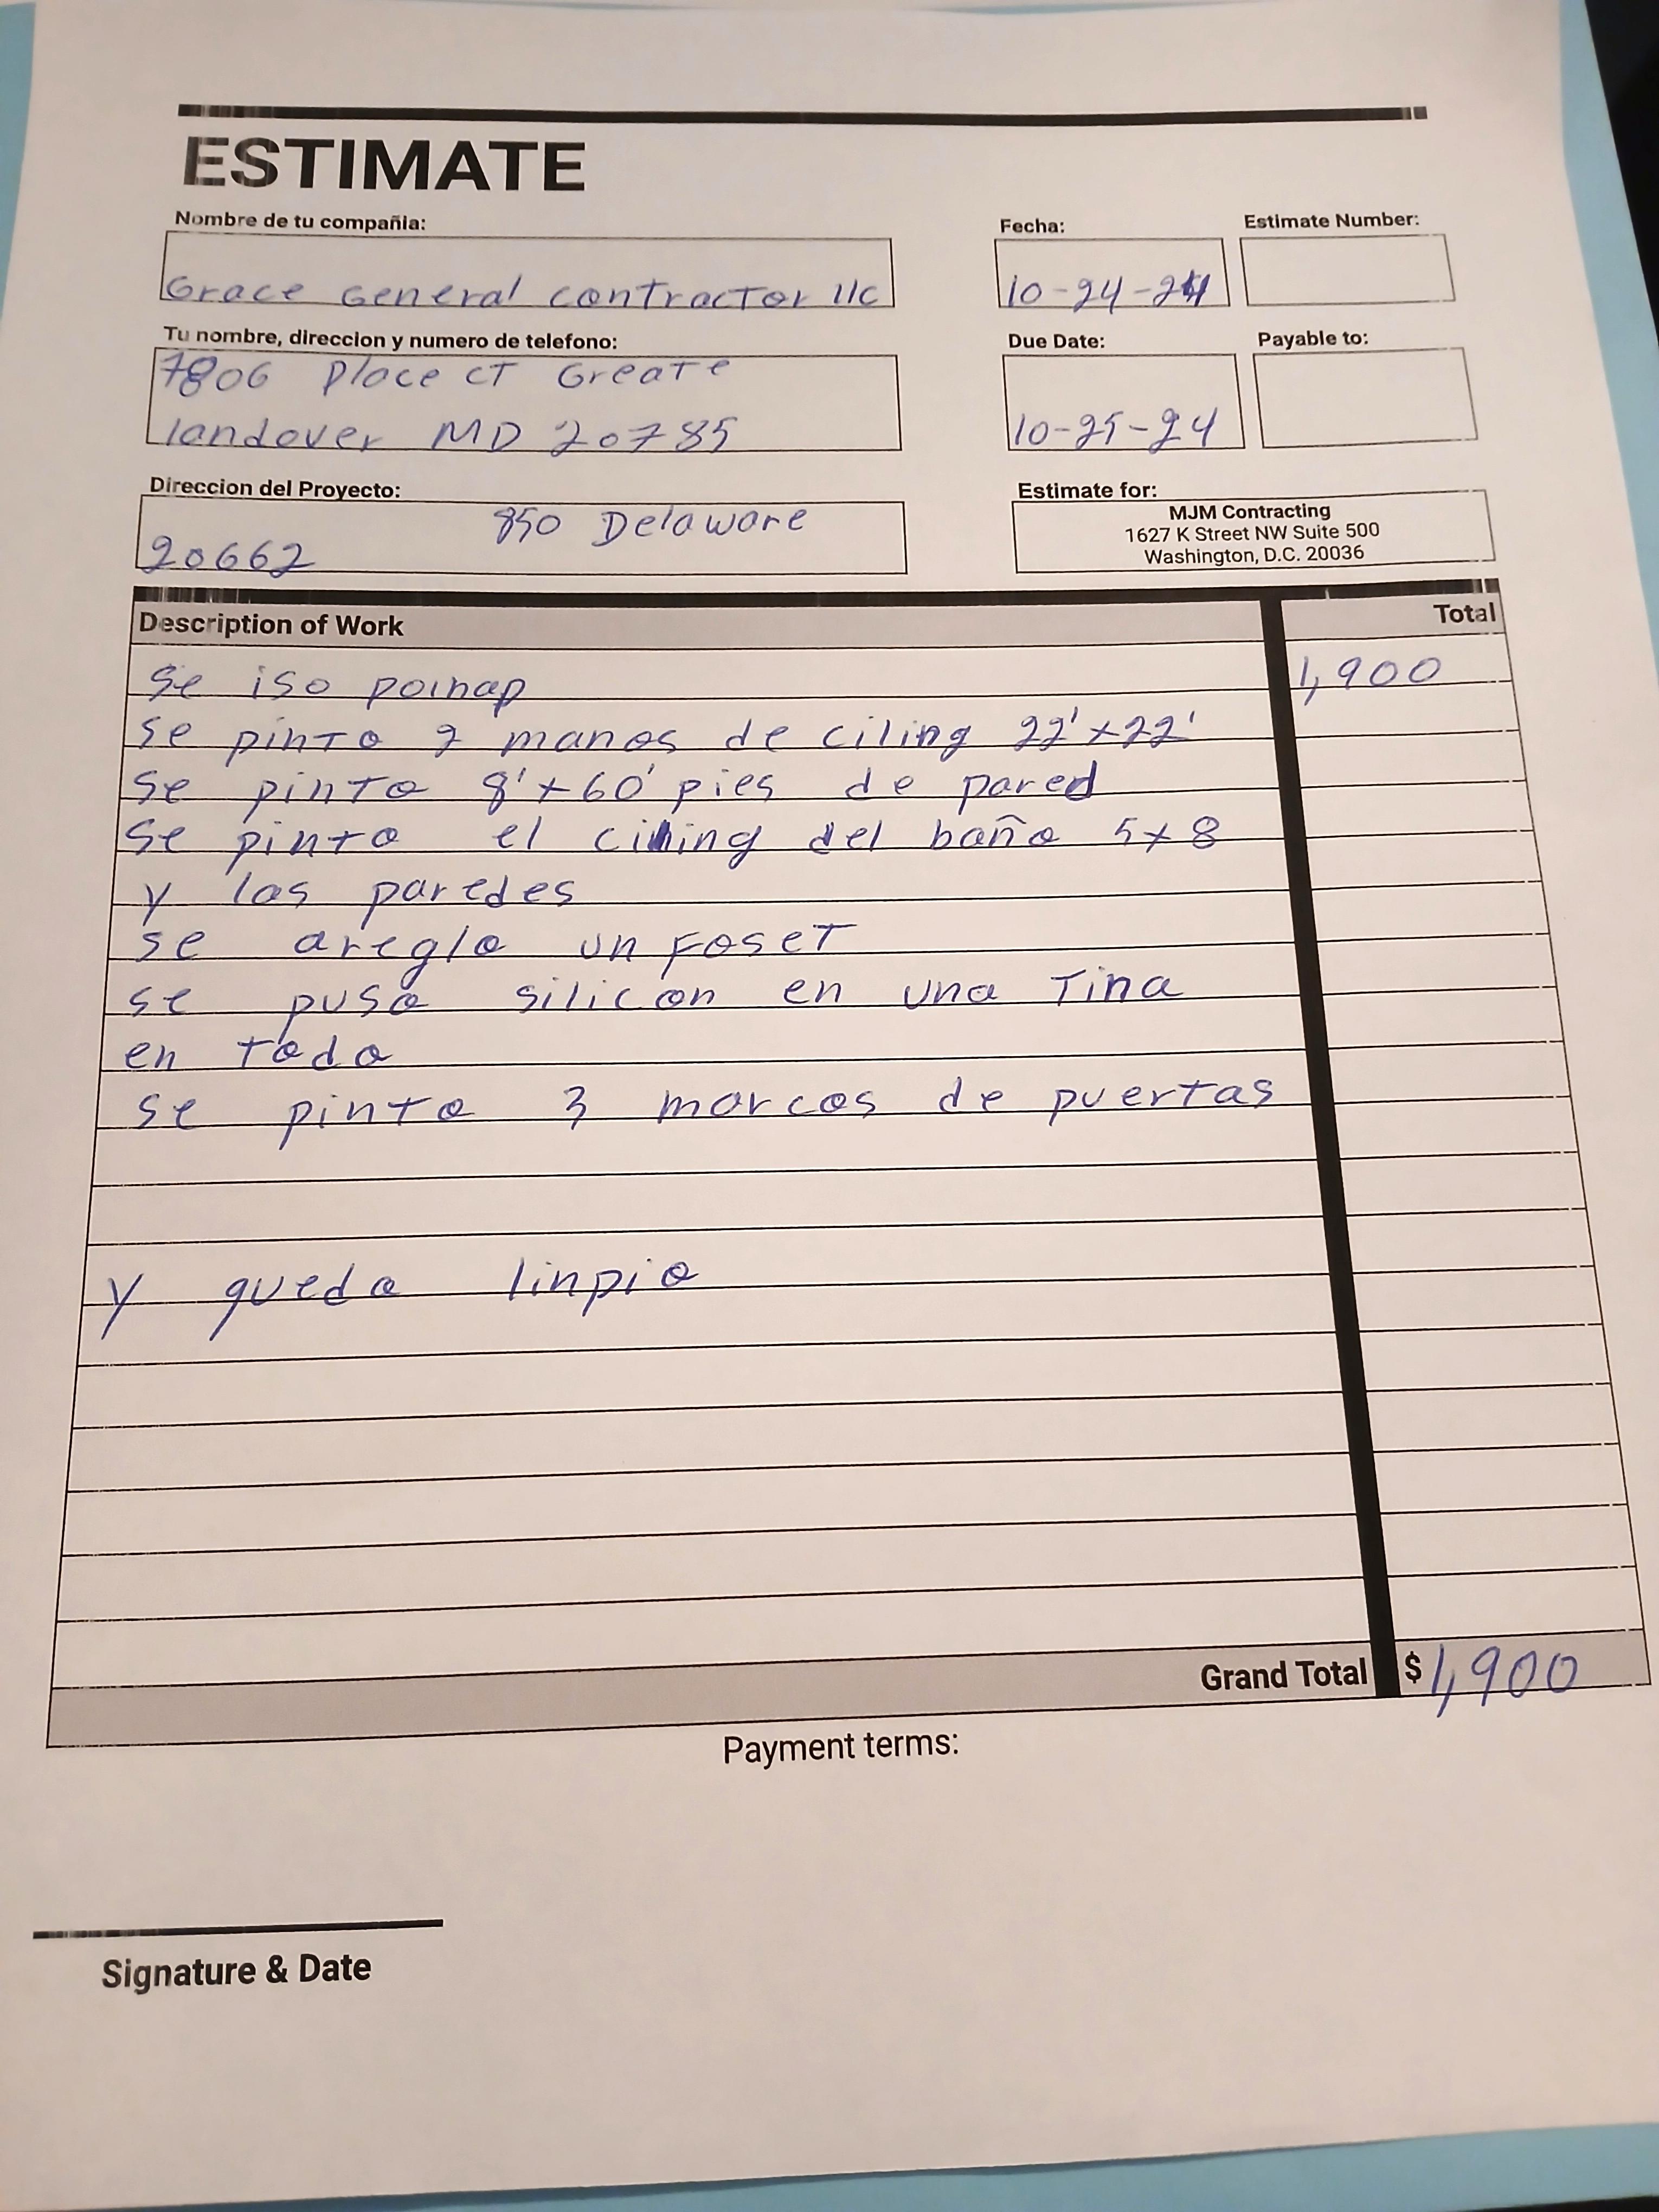 ESTIMATE
Nombre de tu compañia:
Grace General contractor llc
Fecha:
10-24-24
Estimate Number:
Tu nombre, direccion y numero de telefono:
7806 Place CT Greate
landover MD 20785
Due Date:
10-25-24
Payable to:
Direccion del Proyecto:
850 Delaware
20662
Estimate for:
MJM Contracting
1627 K Street NW Suite 500
Washington, D.C. 20036
Description of Work
Total
Se iso poinap
1,900
se pinto 2 manos de ciling 22'x22'
se pinto 8'x60' pies de pared
Se pinto el ciling del baño 5x8
y las paredes
se areglo un Foset
se puso silicon en una Tina
en Todo
se pinto 3 marcos de puertas
y quedo linpio
Grand Total
$ 1,900
Payment terms:
Signature & Date